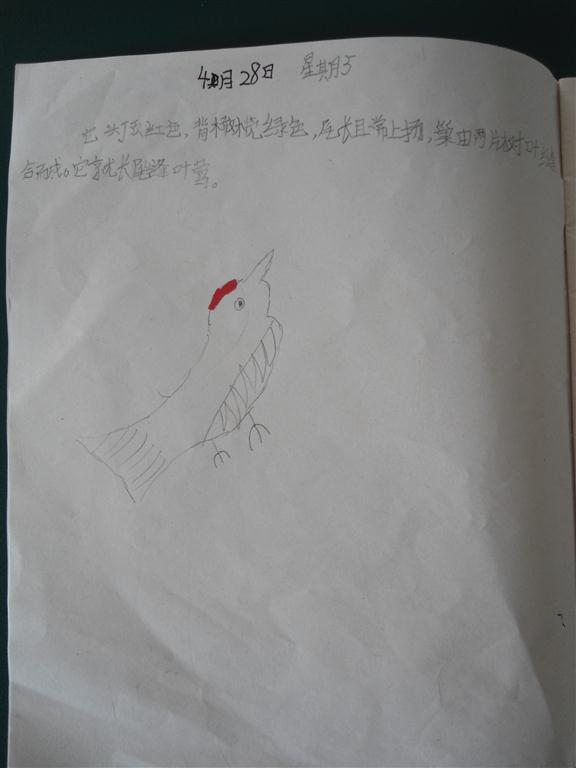 4月28日 星期5
它头顶红色,背橄榄绿色,尾长且常上扬,巢由两片树叶缝
合而成。它就长尾缝叶莺。